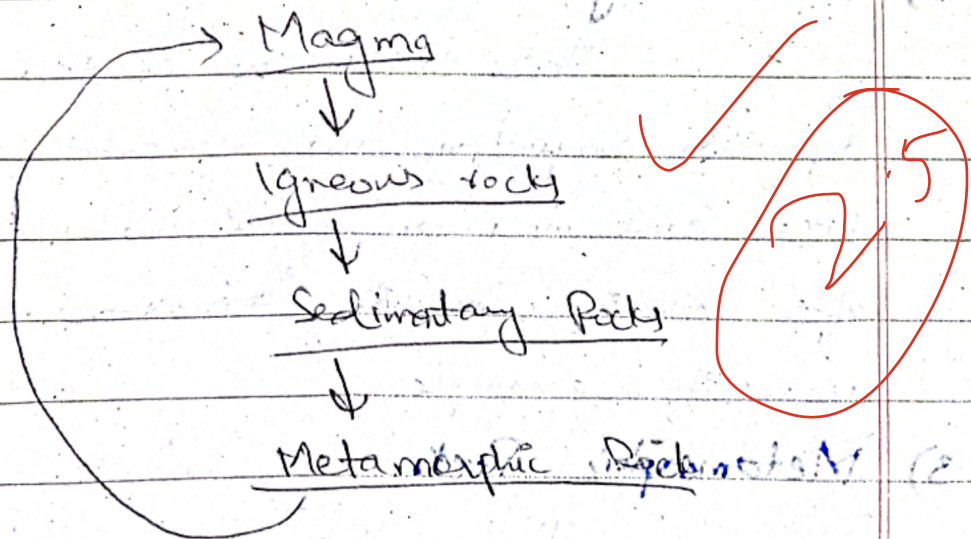 Magma
Igneous rocks
2.5
Sedimentary Rocks
Metamorphic Rock